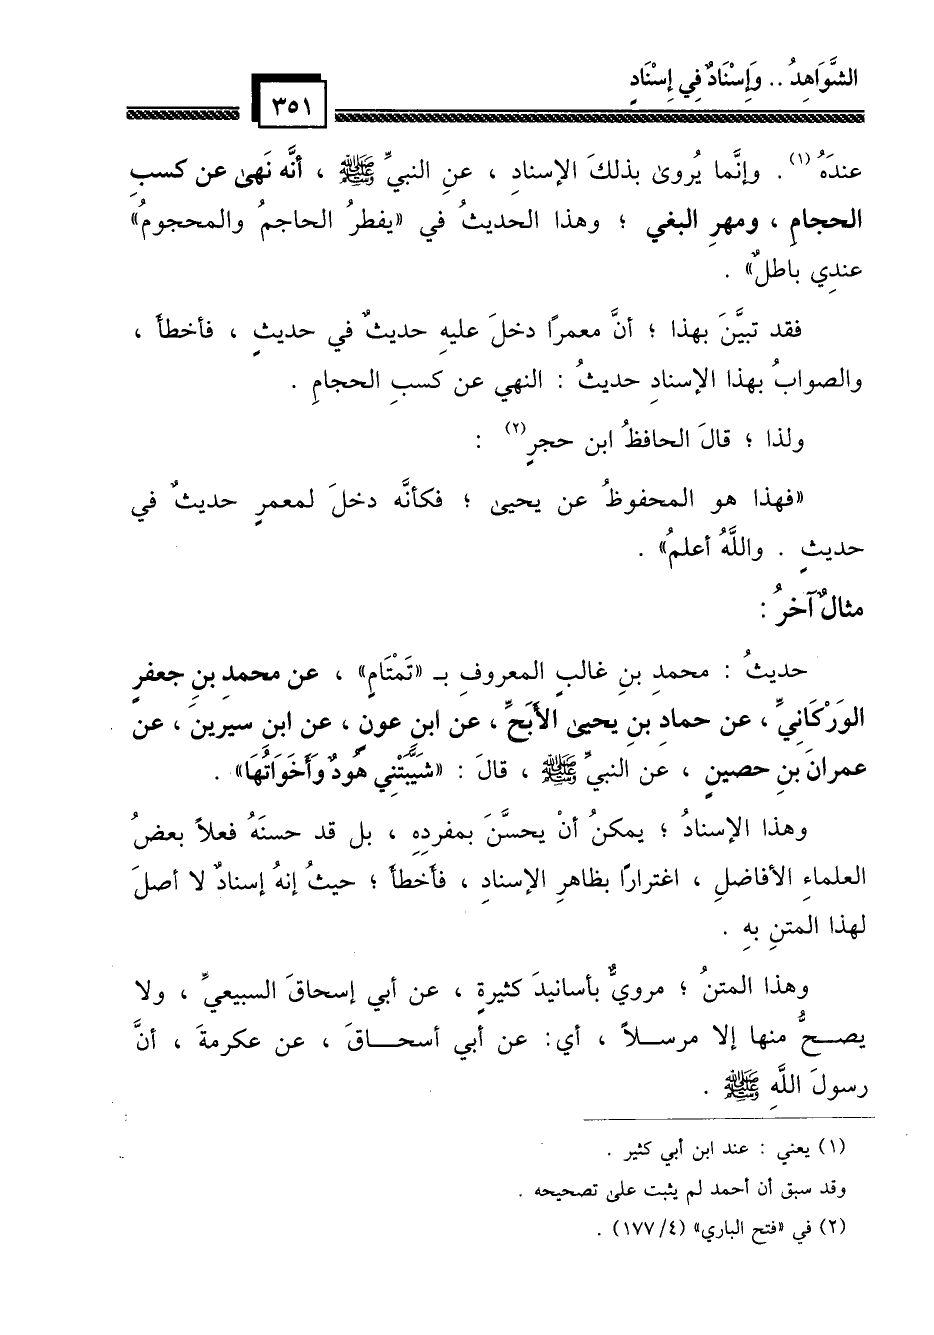 الشَّوَاهِدُ .. وَإِسْنَادٌ فِي إِسْنَادٍ
٣٥١
عندَهُ (١) . وإنَّما يُروىٰ بذلكَ الإسنادِ ، عنِ النبيِّ ﷺ ، أنَّه نَهىٰ عن كسبِ
الحجامِ ، ومهرِ البغي ؛ وهذا الحديثُ في «يفطرُ الحاجمُ والمحجومُ»
عندِي باطلٌ» .
فقد تبيَّنَ بهذا ؛ أنَّ معمرًا دخلَ عليهِ حديثٌ في حديثٍ ، فأخطأَ ،
والصوابُ بهذا الإسنادِ حديثُ : النهي عن كسبِ الحجامِ .
ولذا ؛ قالَ الحافظُ ابن حجرٍ (٢) :
«فهذا هو المحفوظُ عن يحيىٰ ؛ فكأنَّه دخلَ لمعمرٍ حديثٌ في
حديثٍ . واللَّهُ أعلمُ» .
مثالٌ آخرُ :
حديثُ : محمدِ بنِ غالبٍ المعروفِ بـ «تَمْتَامٍ» ، عن محمدِ بنِ جعفرٍ
الوَرْكَانِيِّ ، عن حمادِ بنِ يحيىٰ الأَبَحِّ ، عن ابنِ عونٍ ، عن ابنِ سيرينَ ، عن
عمرانَ بنِ حصينٍ ، عن النبيِّ ﷺ ، قالَ : «شَيَّبَتْنِي هُودٌ وأَخَوَاتُهَا» .
وهذا الإسنادُ ؛ يمكنُ أنْ يحسَّنَ بمفردِهِ ، بل قد حسنَهُ فعلاً بعضُ
العلماءِ الأفاضلِ ، اغترارًا بظاهرِ الإسنادِ ، فأخطأَ ؛ حيثُ إنهُ إسنادٌ لا أصلَ
لهذا المتنِ بهِ .
وهذا المتنُ ؛ مرويٌّ بأسانيدَ كثيرةٍ ، عن أبي إسحاقَ السبيعيِّ ، ولا
يصــحُّ منها إلا مرســلاً ، أي: عن أبي أسحــاقَ ، عن عكرمةَ ، أنَّ
رسولَ اللَّهِ ﷺ .
(١) يعني : عند ابن أبي كثير .
وقد سبق أن أحمد لم يثبت علىٰ تصحيحه .
(٢) في «فتح الباري» (٤/ ١٧٧) .